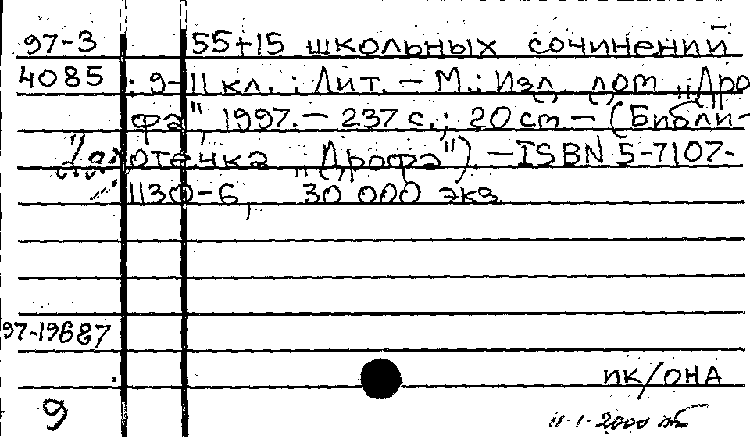 97-3 55+15 школьных сочинений
4085 : 9-11 кл. : Лит. – М.: Изд. дом „Дро-
фа", 1997. – 237 с.; 20 cm – (Библи-
отечка „Дрофа"). – ISBN 5-7107-
1130-6, 30 000 экз
97-19687
ПК/ОНА
9 11-1-2000